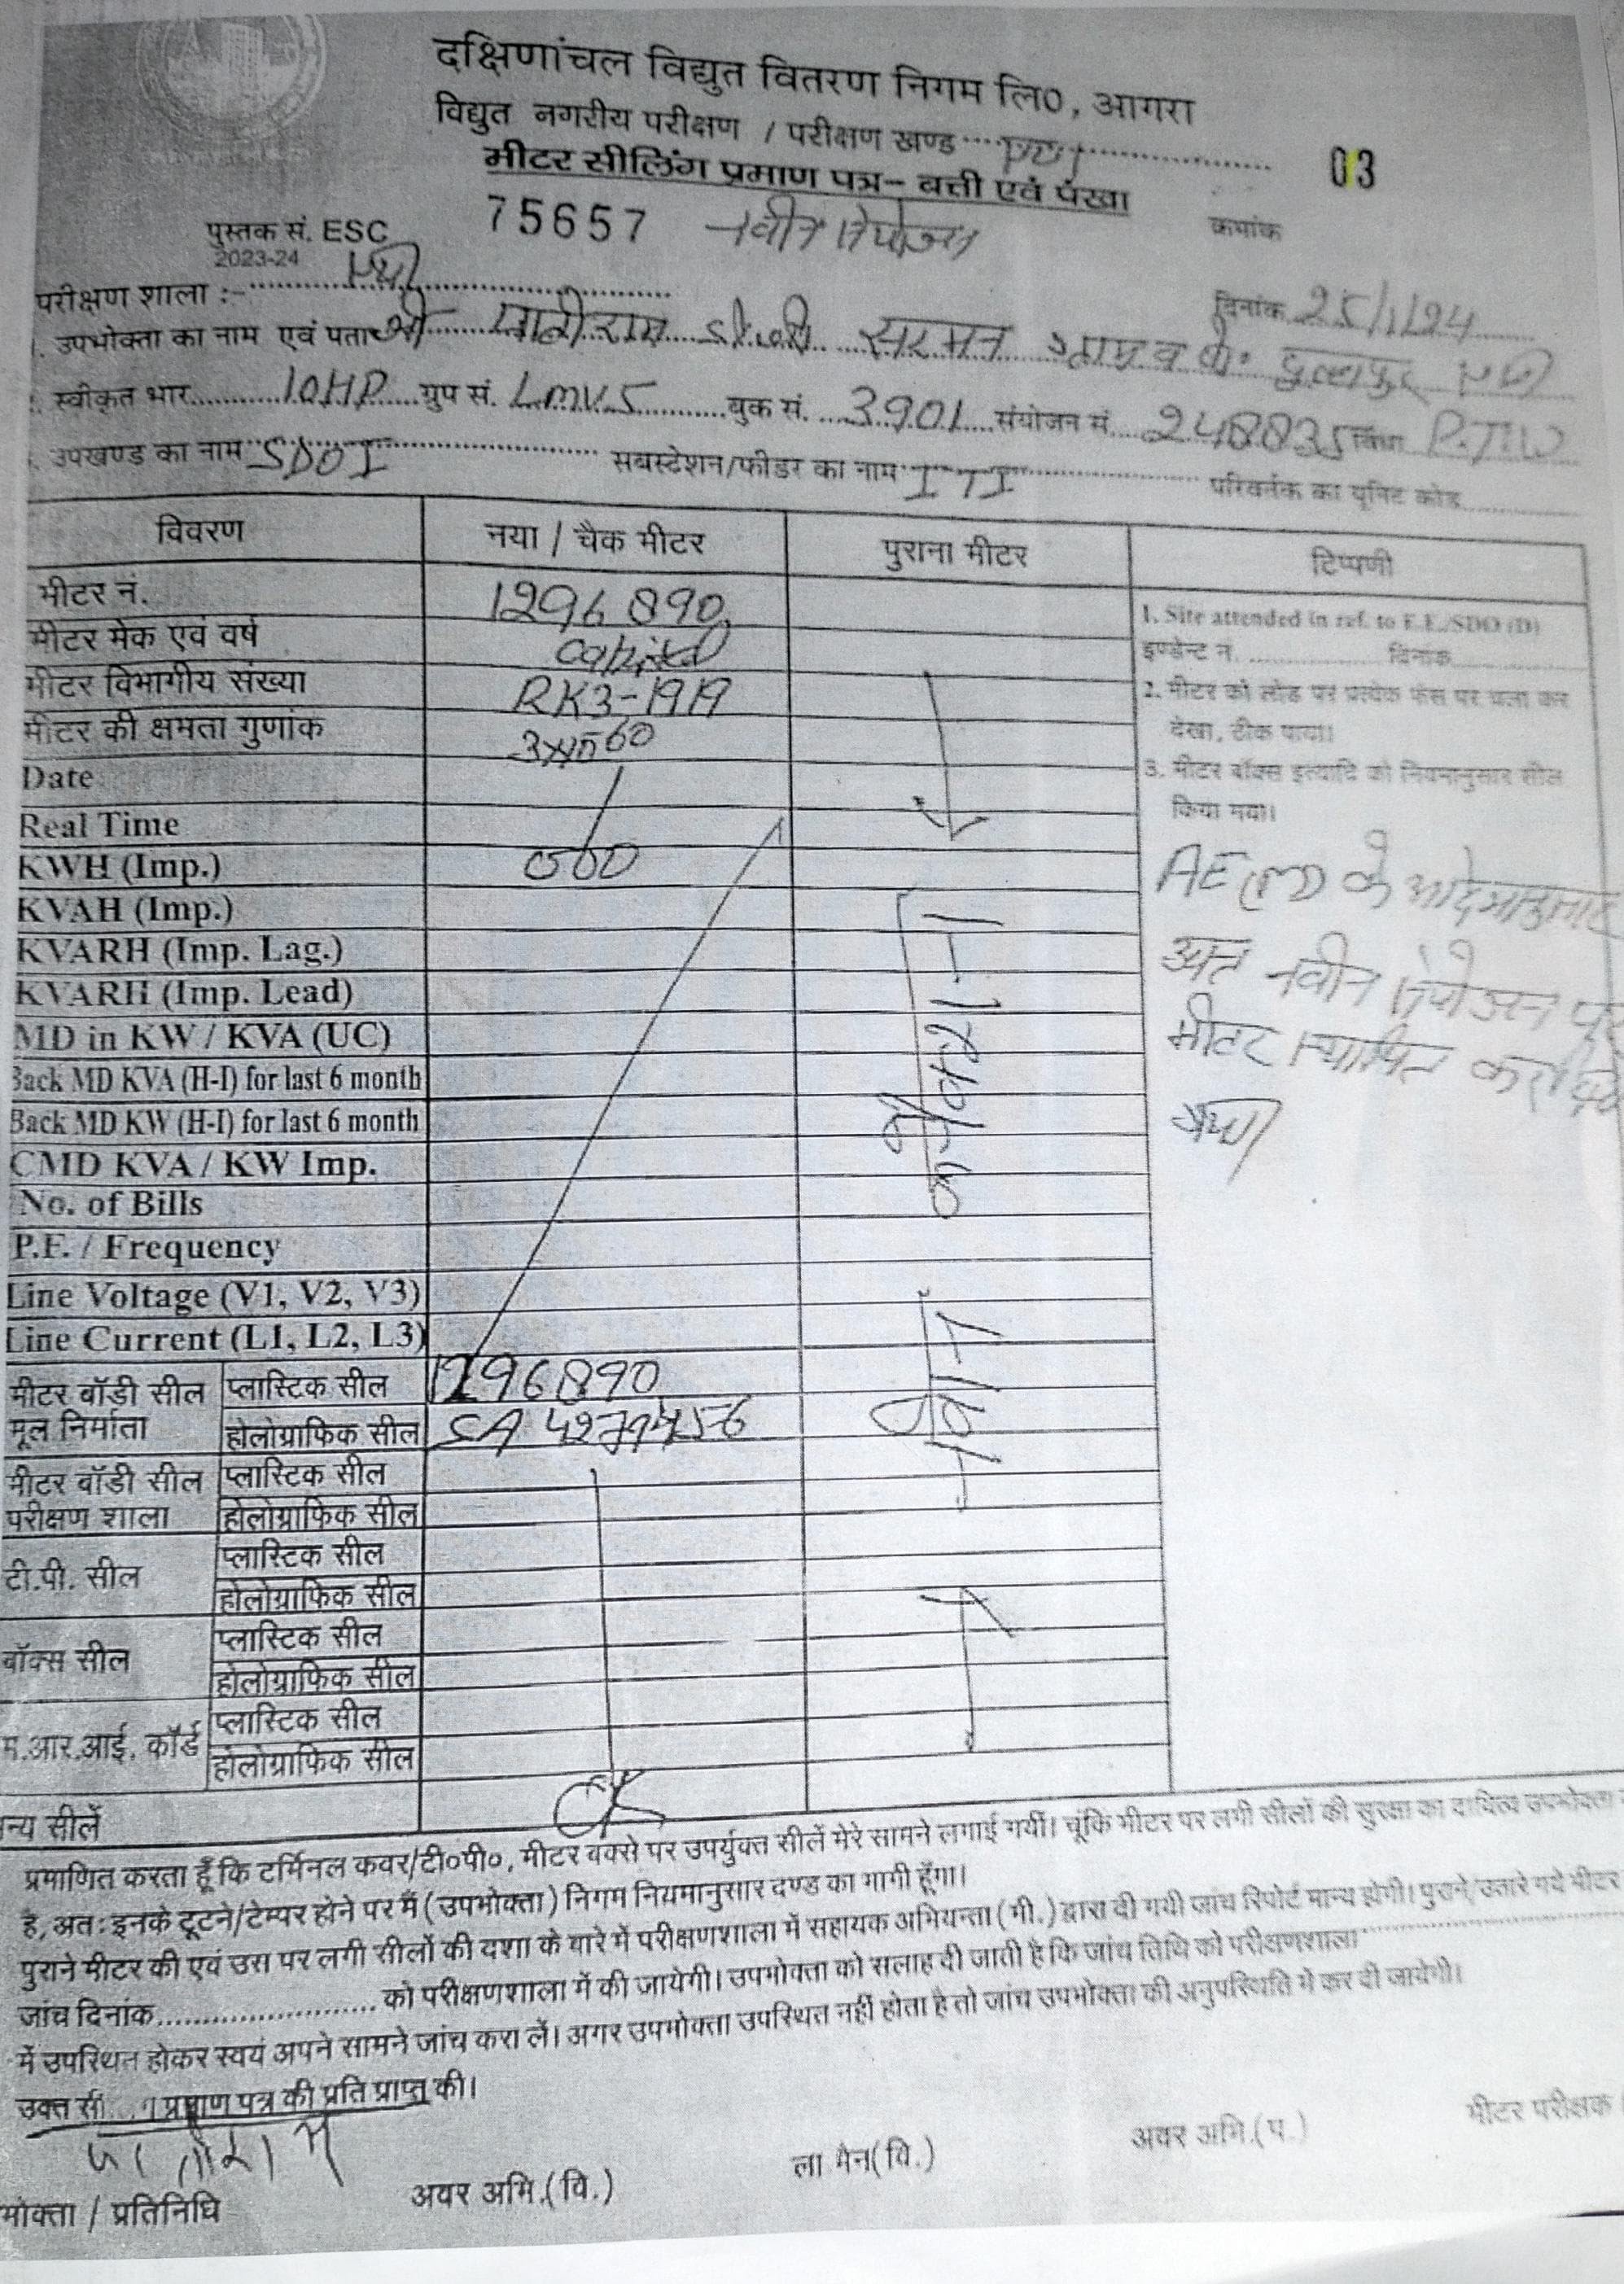 दक्षिणांचल विद्युत वितरण निगम लि०, आगरा
विद्युत नगरीय परीक्षण / परीक्षण खण्ड
03
मीटर सीलिंग प्रमाण पत्र- बत्ती एवं पंखा
पुस्तक सं. ESC 75657 नवीन संयोजन क्रमांक
2023-24
परीक्षण शाला :- दिनांक 25/1/24
उपभोक्ता का नाम एवं पता श्री सरमन ग्राम व पो०
स्वीकृत भार 10HP ग्रुप सं. LMV5 बुक सं. 3901 संयोजन सं. 248835 विधा P.T.W
उपखण्ड का नाम SDO I सबस्टेशन/फीडर का नाम ITI परिवर्तक का यूनिट कोड
विवरण नया / चैक मीटर पुराना मीटर टिप्पणी
मीटर नं. 1296890
मीटर मेक एवं वर्ष capital
मीटर विभागीय संख्या RK3-1919
मीटर की क्षमता गुणांक
Date
Real Time
KWH (Imp.) 000
KVAH (Imp.)
KVARH (Imp. Lag.)
KVARH (Imp. Lead)
MD in KW / KVA (UC)
Back MD KVA (H-I) for last 6 month
Back MD KW (H-I) for last 6 month
CMD KVA / KW Imp.
No. of Bills
P.F. / Frequency
Line Voltage (V1, V2, V3)
Line Current (L1, L2, L3)
मीटर बॉडी सील मूल निर्माता
प्लास्टिक सील 1296890
होलोग्राफिक सील
मीटर बॉडी सील परीक्षण शाला
प्लास्टिक सील
होलोग्राफिक सील
टी.पी. सील
प्लास्टिक सील
होलोग्राफिक सील
बॉक्स सील
प्लास्टिक सील
होलोग्राफिक सील
म.आर.आई. कॉर्ड
प्लास्टिक सील
होलोग्राफिक सील
न्य सीलें
1. Site attended in ref. to E.E./SDO (D)
इण्डेन्ट न. दिनांक
2. मीटर को लोड पर प्रत्येक फेस पर चला कर
देखा, ठीक पाया।
3. मीटर बॉक्स इत्यादि को नियमानुसार सील
किया गया।
AE (m) के आदेशानुसार
नवीन संयोजन पर
मीटर स्थापित कर दिया
गया
प्रमाणित करता हूँ कि टर्मिनल कवर/टी०पी०, मीटर बक्से पर उपर्युक्त सीलें मेरे सामने लगाई गयीं। चूंकि मीटर पर लगी सीलों की सुरक्षा का दायित्व उपभोक्ता
है, अतः इनके टूटने/टेम्पर होने पर मैं (उपभोक्ता) निगम नियमानुसार दण्ड का भागी हूँगा।
पुराने मीटर की एवं उस पर लगी सीलों की दशा के बारे में परीक्षणशाला में सहायक अभियन्ता (मी.) द्वारा दी गयी जांच रिपोर्ट मान्य होगी। पुराने/उतारे गये मीटर
जांच दिनांक को परीक्षणशाला में की जायेगी। उपभोक्ता को सलाह दी जाती है कि जांच तिथि को परीक्षणशाला
में उपस्थित होकर स्वयं अपने सामने जांच करा लें। अगर उपभोक्ता उपस्थित नहीं होता है तो जांच उपभोक्ता की अनुपस्थिति में कर दी जायेगी।
उक्त प्रमाण पत्र की प्रति प्राप्त की।
भोक्ता / प्रतिनिधि अवर अभि.(वि.) ला मैन(वि.) अवर अभि.(प.) मीटर परीक्षक